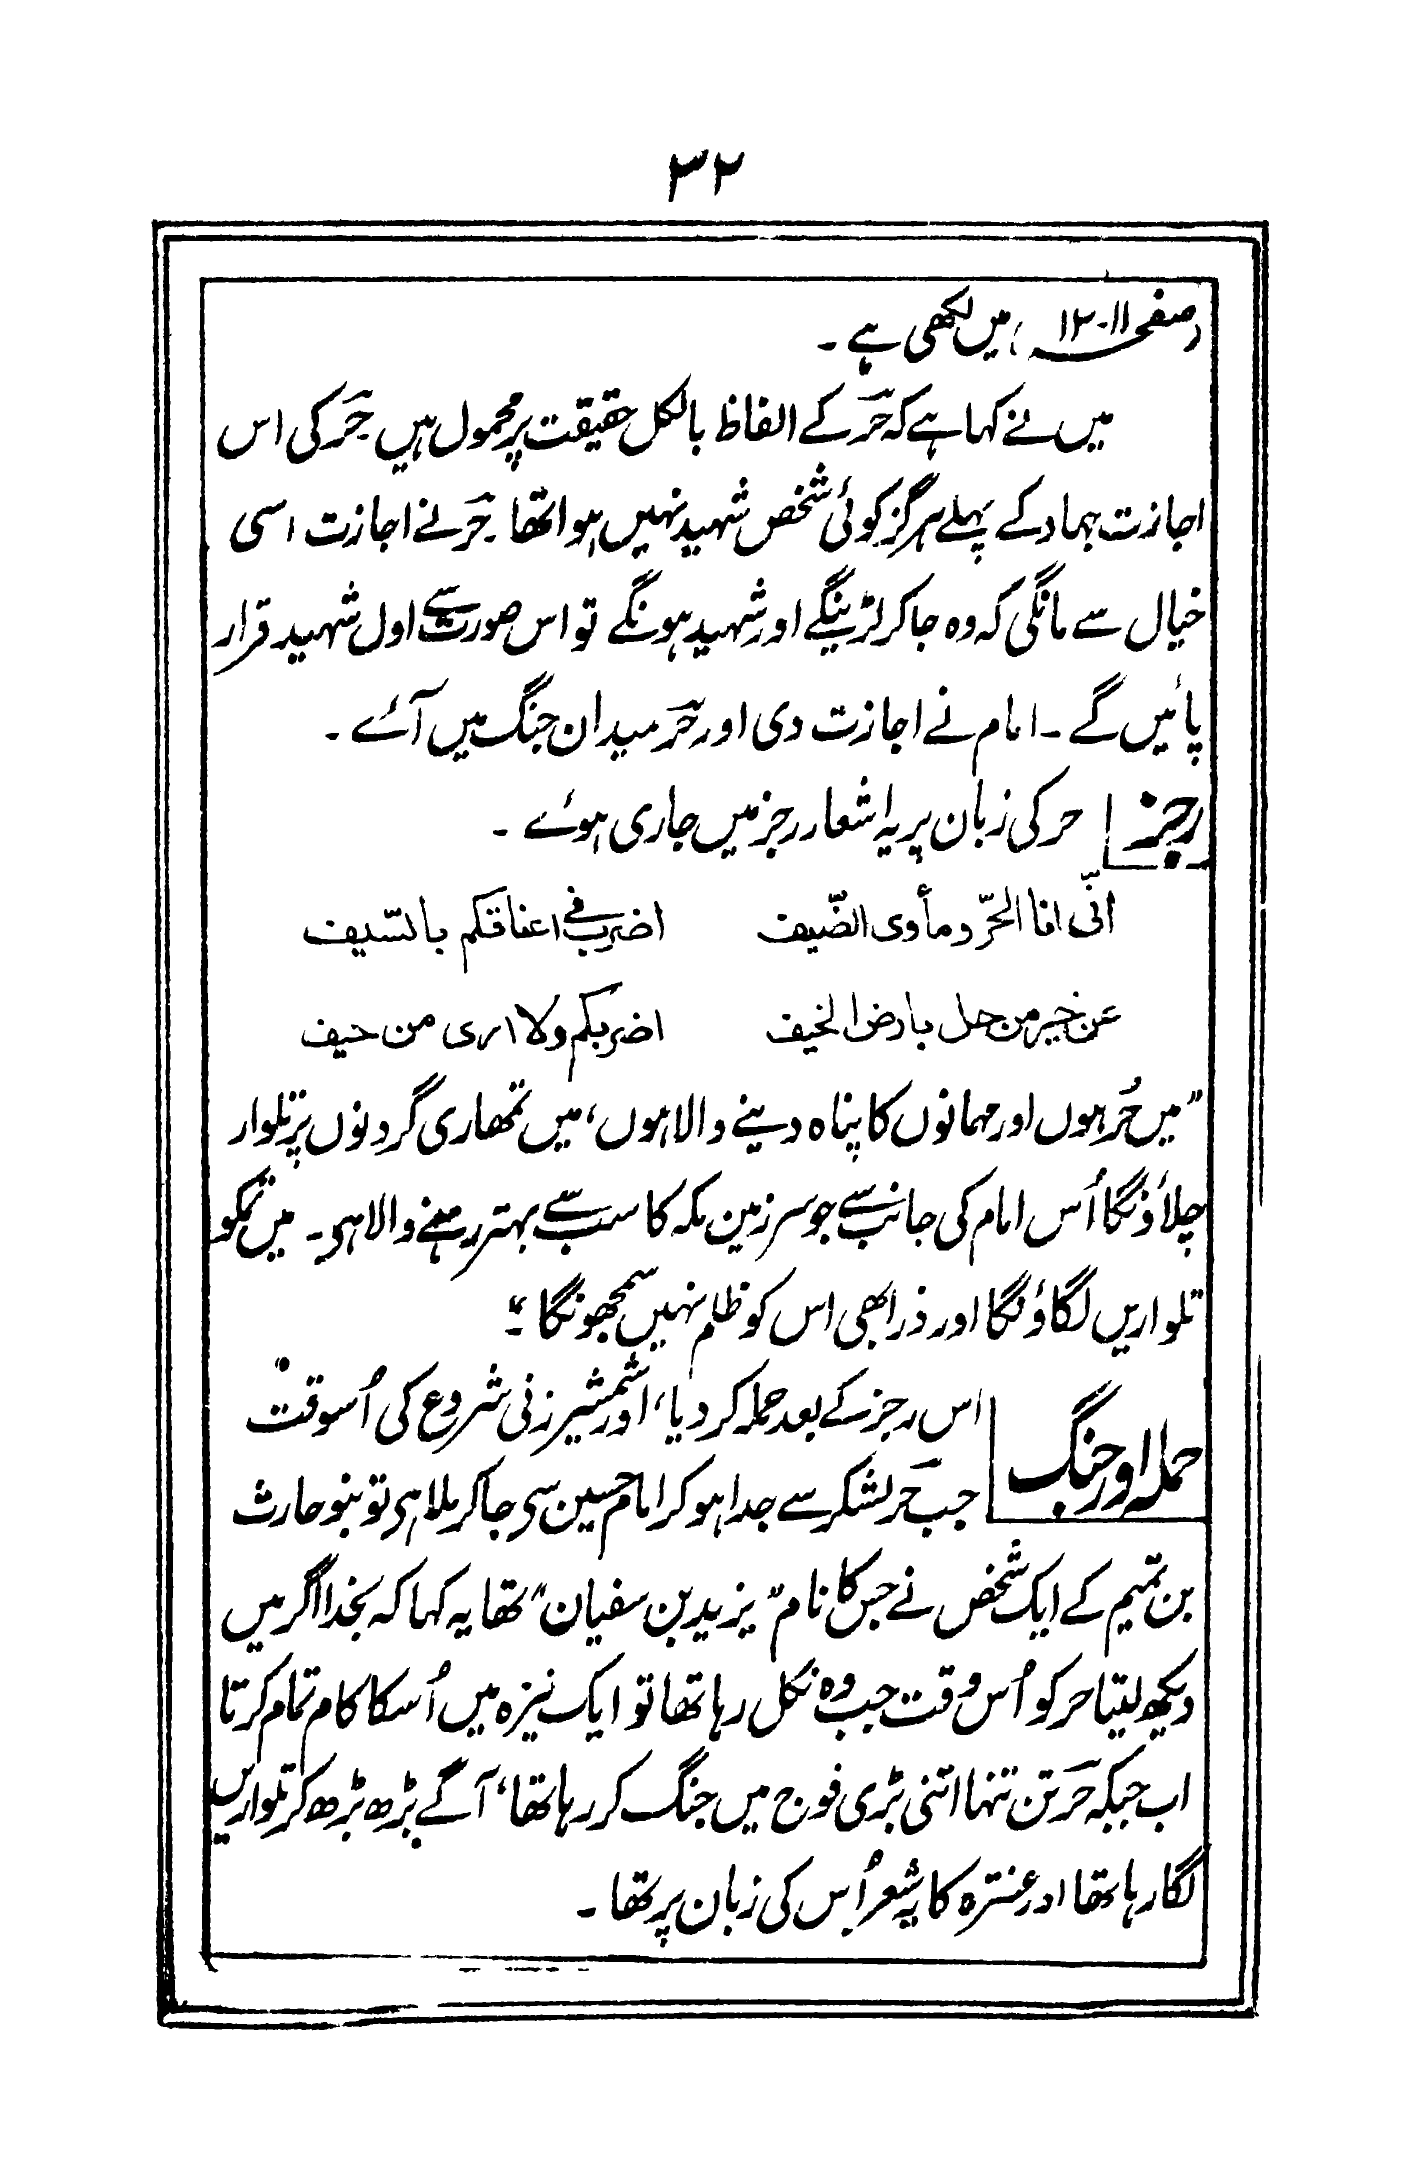 ۳۲
(صفحہ ۱۱-۱۲) میں لکھی ہے ۔
میں نے کہا ہے کہ حر کے الفاظ بالکل حقیقت پر محمول ہیں حر کی اس
اجازت جہاد کے پہلے ہرگز کوئی شخص شہید نہیں ہوا تھا ۔ حر نے اجازت اسی
خیال سے مانگی کہ وہ جا کر لڑینگے اور شہید ہونگے تو اس صورت سے اول شہید قرار
پائیں گے ۔ امام نے اجازت دی اور حر میدان جنگ میں آئے ۔
رجز
حر کی زبان پر یہ اشعار رجز میں جاری ہوئے ۔
انّی انا الحرّ و مأوی الضّیف اضرب فی اعناقکم بالسّیف
عن خیر من حل بارض الخیف اضربکم ولا اری من حیف
”میں حُر ہوں اور مہمانوں کا پناہ دینے والا ہوں، میں تمھاری گردنوں پر تلوار
چلاؤنگا اُس امام کی جانب سے جو سرزمین مکہ کا سب سے بہتر رہنے والا ہی ۔ میں تمکو
تلواریں لگاؤنگا اور ذرا بھی اس کو ظلم نہیں سمجھونگا ۔“
حملہ اور جنگ
اس رجز کے بعد حملہ کر دیا، اور شمشیر زنی شروع کی اُسوقت
جب حر لشکر سے جدا ہو کر امام حسین سی جا کر ملا ہی تو بنو حارث
بن تمیم کے ایک شخص نے جس کا نام ”یزید بن سفیان“ تھا یہ کہا کہ بخدا اگر میں
دیکھ لیتا حر کو اُس وقت جب وہ نکل رہا تھا تو ایک نیزہ میں اُسکا کام تمام کرتا
اب جبکہ حر تن تنہا اتنی بڑی فوج میں جنگ کر رہا تھا، آگے بڑھ بڑھ کر تلواریں
لگا رہا تھا اور عنترہ کا یہ شعر اُس کی زبان پر تھا ۔